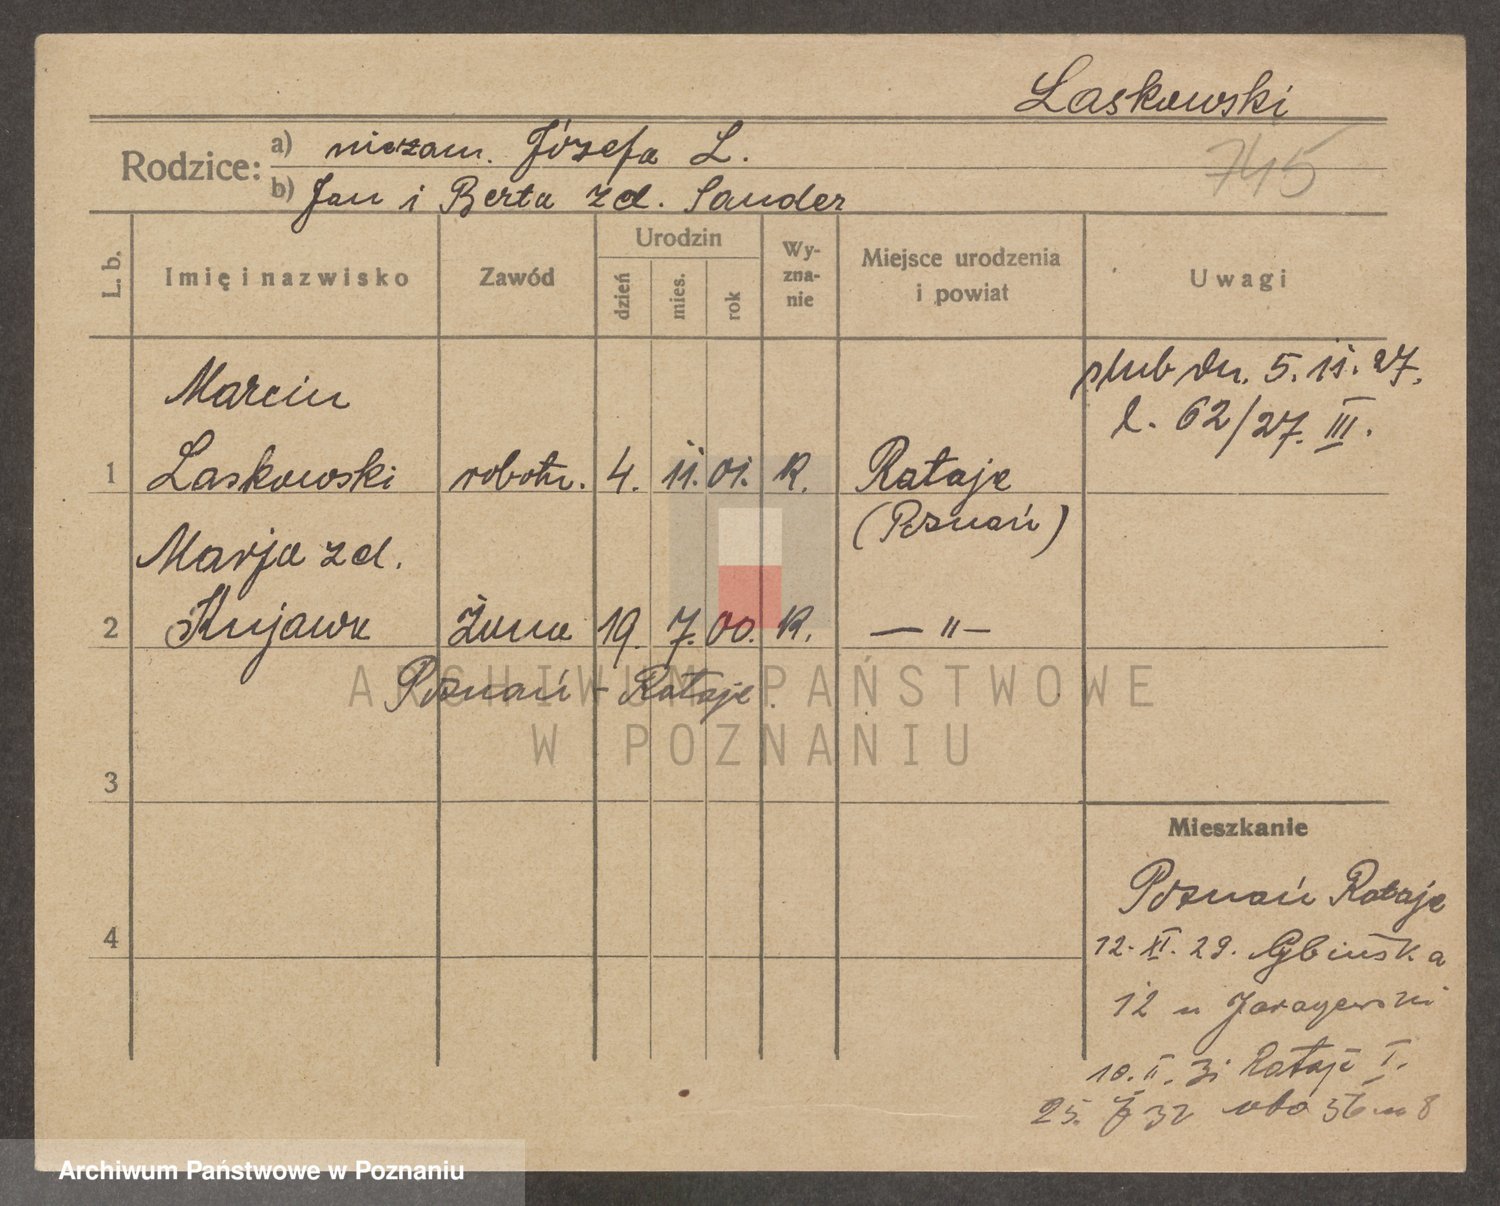 Laskowski
745
Rodzice:
a) niezam. Józefa L.
b) Jan i Berta zd. Sander
L. b.
Imię i nazwisko
Zawód
Urodzin
dzień
mies.
rok
Wy-
zna-
nie
Miejsce urodzenia
i powiat
Uwagi
ślub dn. 5. 11. 27.
l. 62/27. III.
Marcin
1 Laskowski robotn. 4. 11. 01. K. Rataje
(Poznań)
Marja zd.
2 Kujawa Żona 19. 7. 00. K. — " —
Poznań - Rataje.
3
4
Mieszkanie
Poznań Rataje
12. XI. 29.
12 u
10. II. 31 Rataje I.
25. 32 8
ARCHIWUM PAŃSTWOWE
W POZNANIU
Archiwum Państwowe w Poznaniu